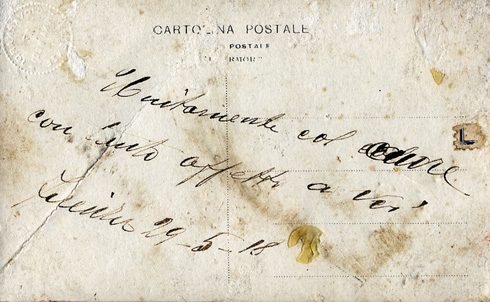 CARTOLINA POSTALE
POSTALE
Unitamente col cuore
con tutto affetto a voi
29-5-18
L